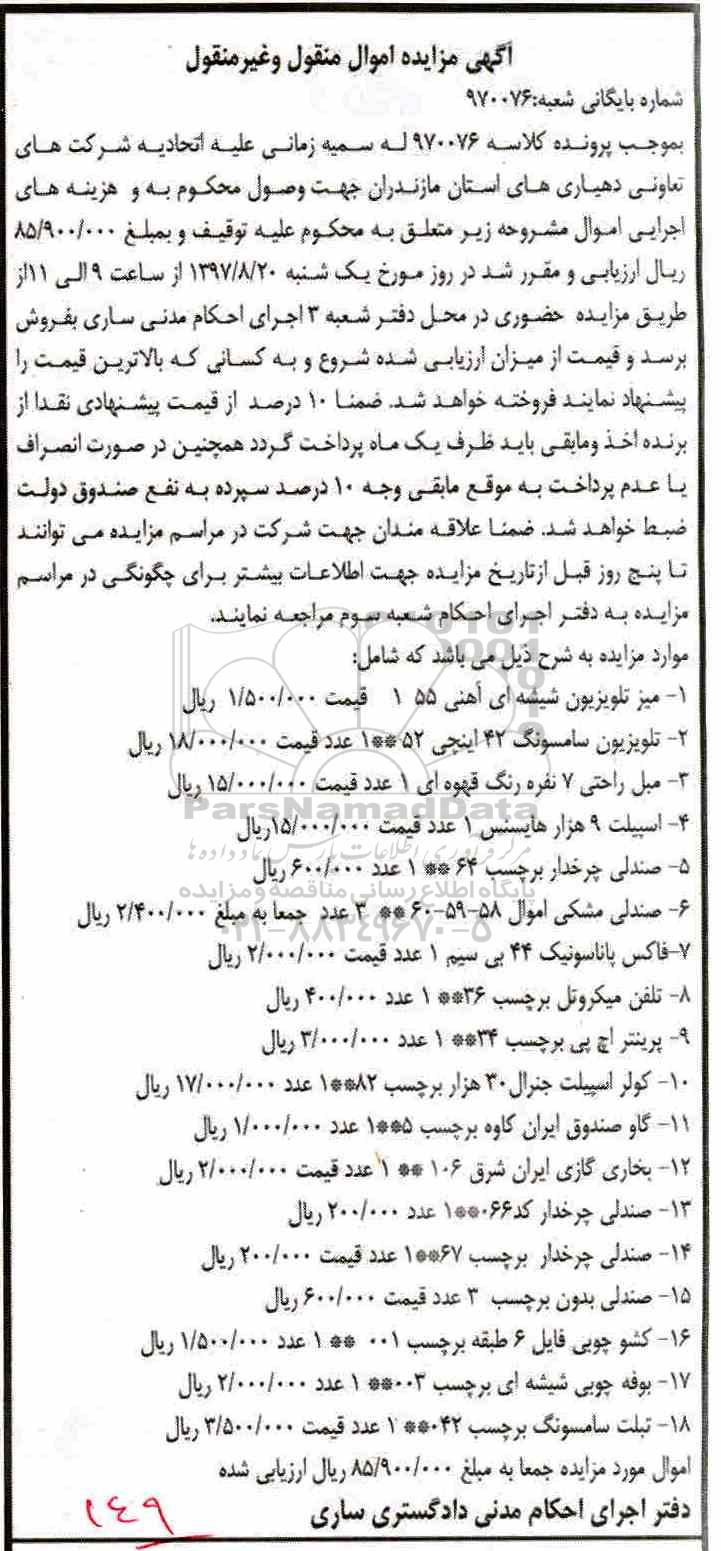 آگهی مزایده اموال منقول وغیرمنقول
شماره بایگانی شعبه:۹۷۰۰۷۶
بموجب پرونده کلاسه ۹۷۰۰۷۶ له سمیه زمانی علیه اتحادیه شرکت های
تعاونی دهیاری های استان مازندران جهت وصول محکوم به و هزینه های
اجرایی اموال مشروحه زیر متعلق به محکوم علیه توقیف و بمبلغ ۸۵/۹۰۰/۰۰۰
ریال ارزیابی و مقرر شد در روز مورخ یک شنبه ۱۳۹۷/۸/۲۰ از ساعت ۹ الی ۱۱از
طریق مزایده حضوری در محل دفتر شعبه ۳ اجرای احکام مدنی ساری بفروش
برسد و قیمت از میزان ارزیابی شده شروع و به کسانی که بالاترین قیمت را
پیشنهاد نمایند فروخته خواهد شد. ضمنا ۱۰ درصد از قیمت پیشنهادی نقدا از
برنده اخذ ومابقی باید ظرف یک ماه پرداخت گردد همچنین در صورت انصراف
یا عدم پرداخت به موقع مابقی وجه ۱۰ درصد سپرده به نفع صندوق دولت
ضبط خواهد شد. ضمنا علاقه مندان جهت شرکت در مراسم مزایده می توانند
تا پنج روز قبل ازتاریخ مزایده جهت اطلاعات بیشتر برای چگونگی در مراسم
مزایده به دفتر اجرای احکام شعبه سوم مراجعه نمایند.
موارد مزایده به شرح ذیل می باشد که شامل:
۱- میز تلویزیون شیشه ای آهنی ۵۵ ۱ قیمت ۱/۵۰۰/۰۰۰ ریال
۲- تلویزیون سامسونگ ۴۲ اینچی ۵۲**۱ عدد قیمت ۱۸/۰۰۰/۰۰۰ ریال
۳- مبل راحتی ۷ نفره رنگ قهوه ای ۱ عدد قیمت ۱۵/۰۰۰/۰۰۰ ریال
ParsNamadData
۴- اسپیلت ۹ هزار هایسنس ۱ عدد قیمت ۱۵/۰۰۰/۰۰۰ریال
مرکز فرآوری اطلاعات پارس نماد داده ها
۵- صندلی چرخدار برچسب ۶۴ ** ۱ عدد ۶۰۰/۰۰۰ ریال
پایگاه اطلاع رسانی مناقصه و مزایده
۶- صندلی مشکی اموال ۵۸-۵۹-۶۰ ** ۳ عدد جمعا به مبلغ ۲/۴۰۰/۰۰۰ ریال
۰۲۱-۸۸۳۴۹۶۷۰-۵
۷-فاکس پاناسونیک ۴۴ بی سیم ۱ عدد قیمت ۲/۰۰۰/۰۰۰ ریال
۸- تلفن میکروتل برچسب ۳۶** ۱ عدد ۴۰۰/۰۰۰ ریال
۹- پرینتر اچ پی برچسب ۳۴** ۱ عدد ۳/۰۰۰/۰۰۰ ریال
۱۰- کولر اسپیلت جنرال۳۰ هزار برچسب ۸۲**۱ عدد ۱۷/۰۰۰/۰۰۰ ریال
۱۱- گاو صندوق ایران کاوه برچسب ۵**۱ عدد ۱/۰۰۰/۰۰۰ ریال
۱۲- بخاری گازی ایران شرق ۱۰۶ ** ۱ عدد قیمت ۲/۰۰۰/۰۰۰ ریال
۱۳- صندلی چرخدار کد۰۶۶**۱ عدد ۲۰۰/۰۰۰ ریال
۱۴- صندلی چرخدار برچسب ۶۷**۱ عدد قیمت ۲۰۰/۰۰۰ ریال
۱۵- صندلی بدون برچسب ۳ عدد قیمت ۶۰۰/۰۰۰ ریال
۱۶- کشو چوبی فایل ۶ طبقه برچسب ۰۰۱ ** ۱ عدد ۱/۵۰۰/۰۰۰ ریال
۱۷- بوفه چوبی شیشه ای برچسب ۰۰۳** ۱ عدد ۲/۰۰۰/۰۰۰ ریال
۱۸- تبلت سامسونگ برچسب ۰۴۲** ۱ عدد قیمت ۳/۵۰۰/۰۰۰ ریال
اموال مورد مزایده جمعا به مبلغ ۸۵/۹۰۰/۰۰۰ ریال ارزیابی شده
دفتر اجرای احکام مدنی دادگستری ساری
۱۴۹